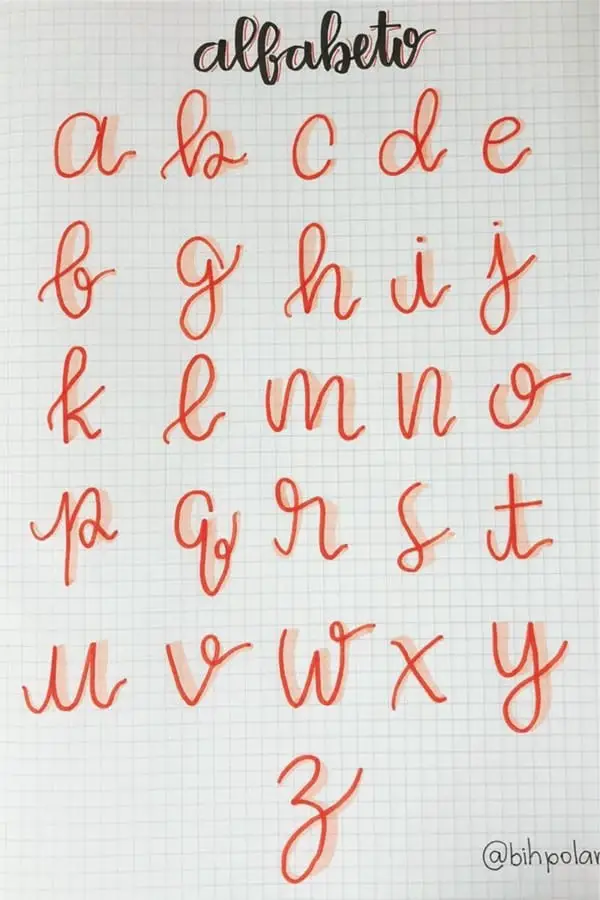 alfabeto
a b c d e
f g h i j
k l m n o
p q r s t
u v w x y
z
@bihpolar